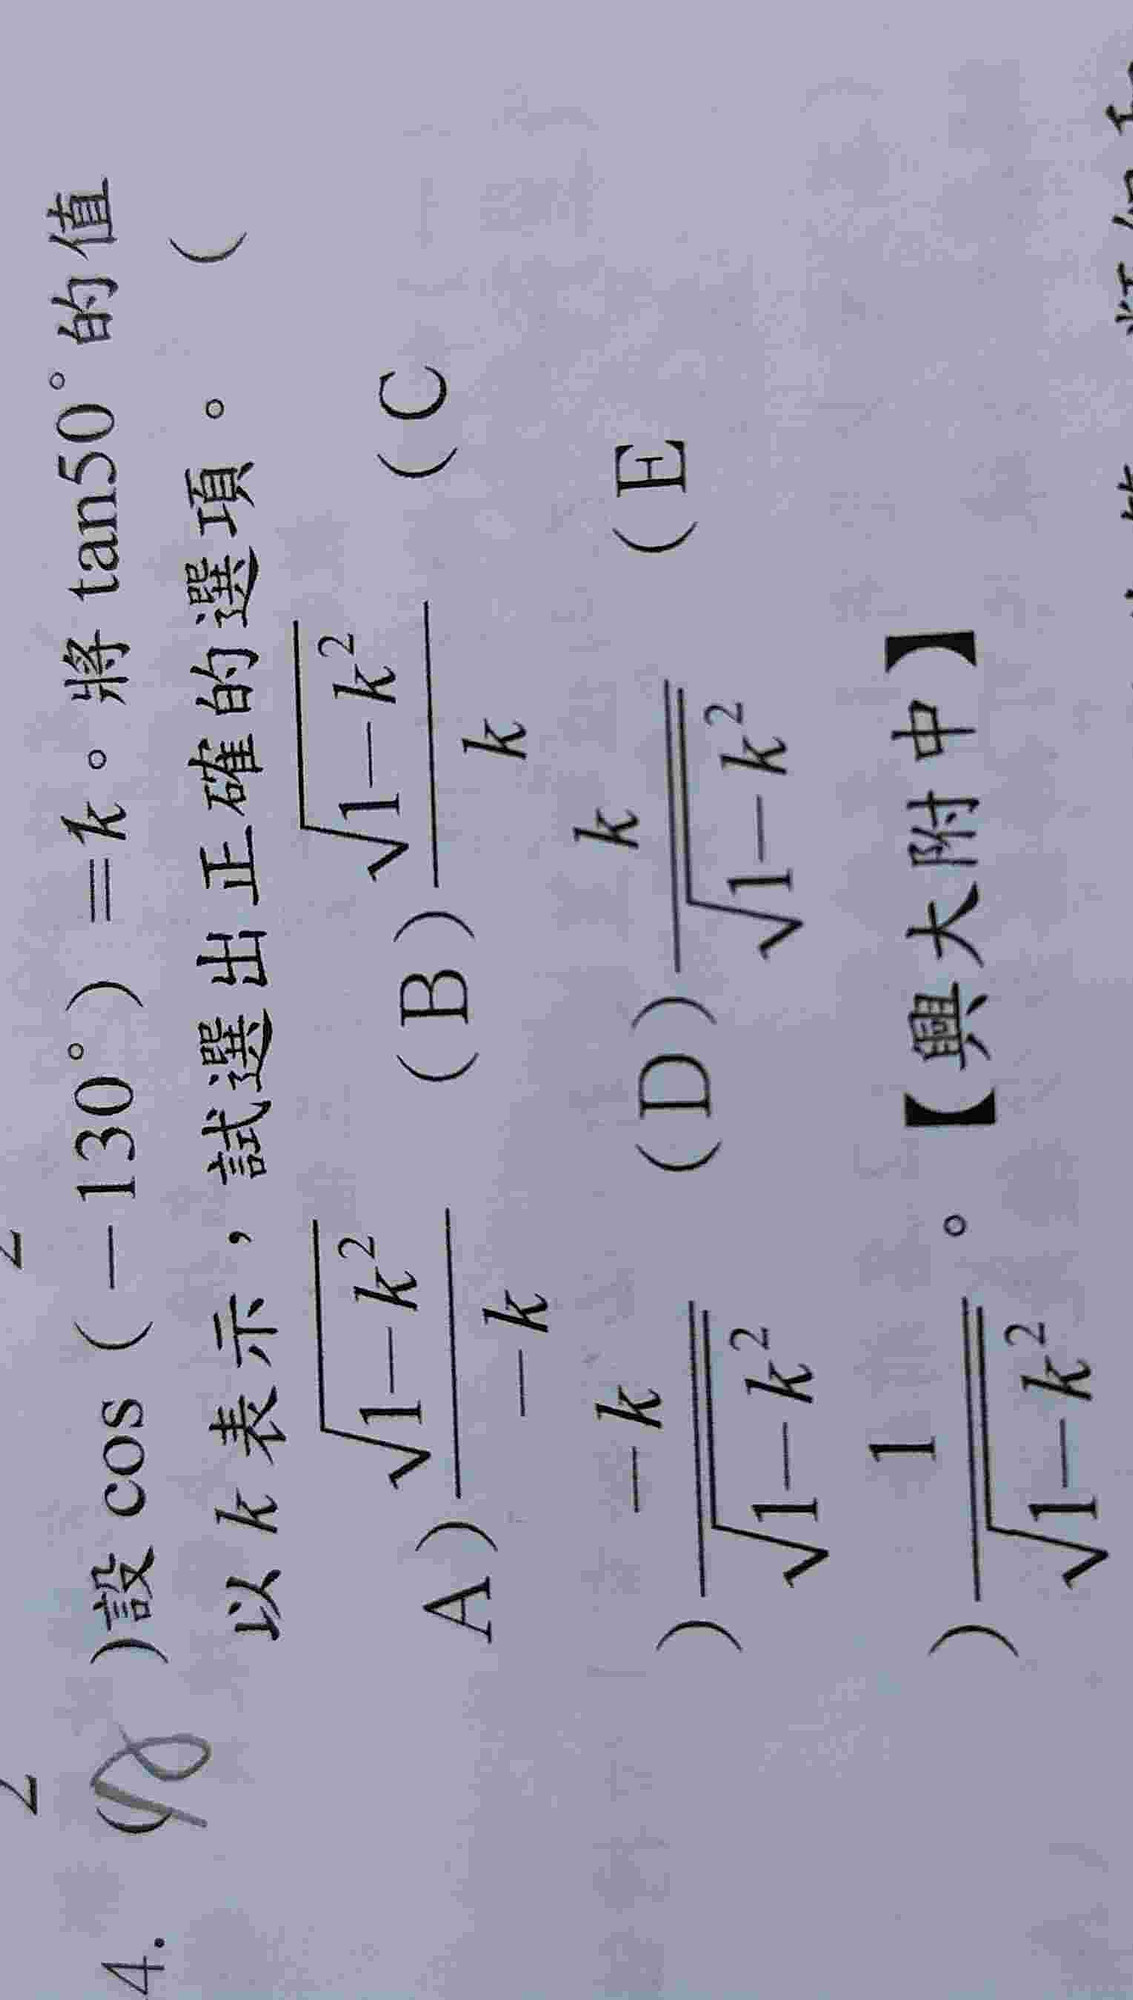 4. ( )設 cos（－130°）＝k。將 tan50° 的值
以 k 表示，試選出正確的選項。 （
A）\frac{\sqrt{1-k^2}}{-k} （B）\frac{\sqrt{1-k^2}}{k} （C
）\frac{-k}{\sqrt{1-k^2}} （D）\frac{k}{\sqrt{1-k^2}} （E
）\frac{1}{\sqrt{1-k^2}}。【興大附中】